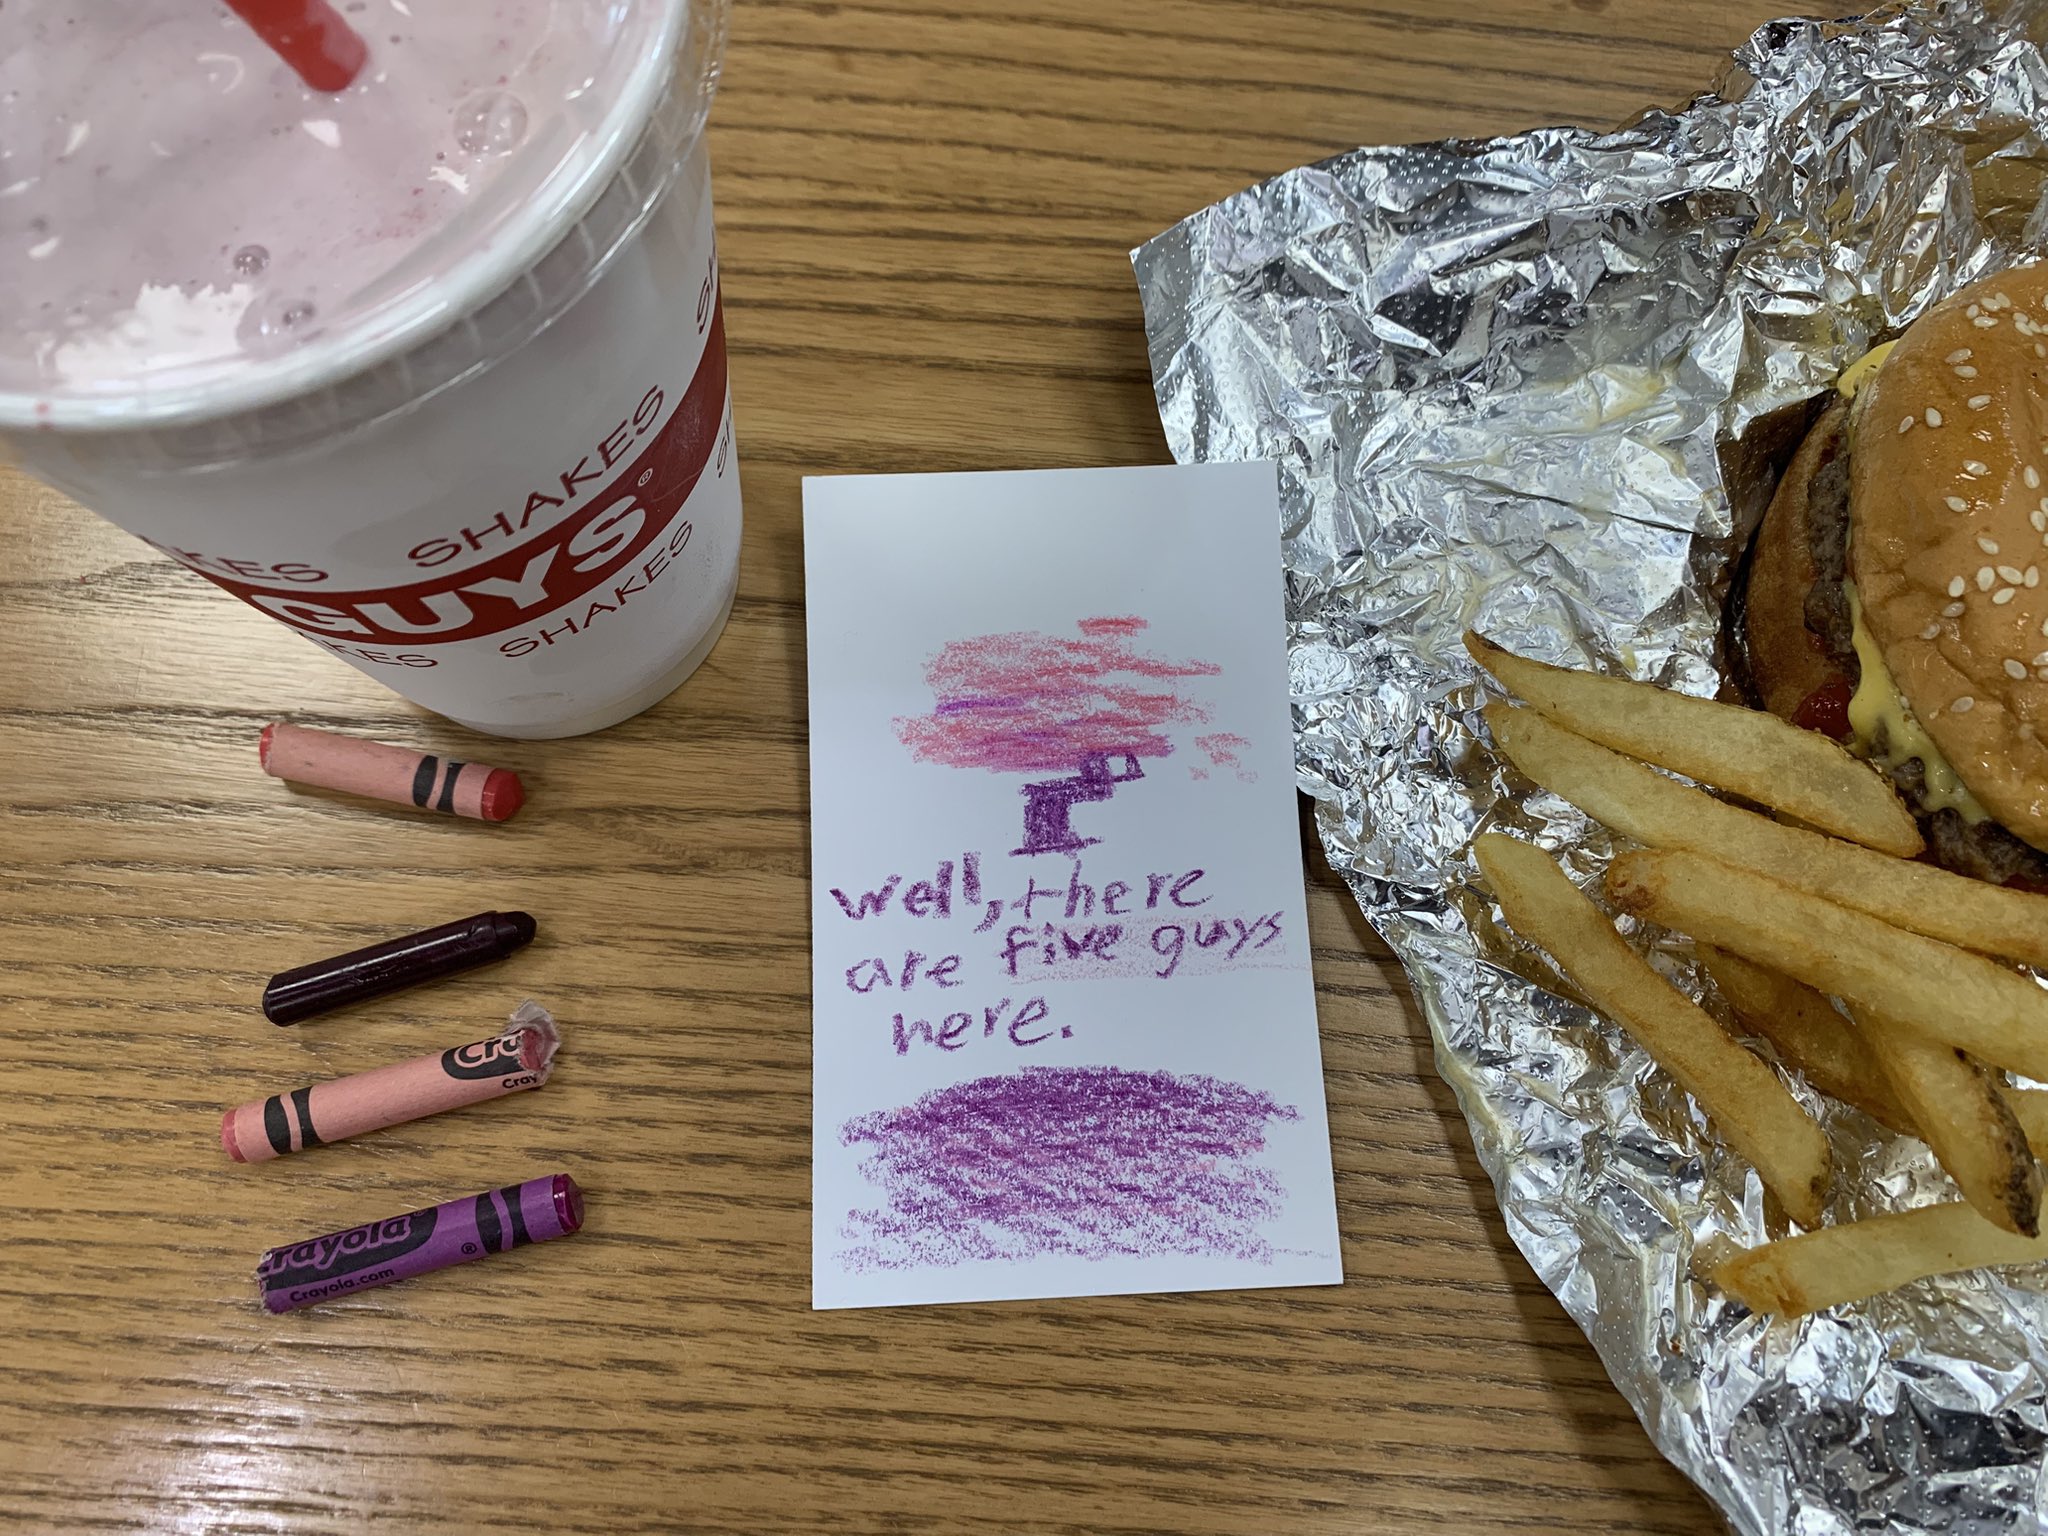 SHAKES
SHAKES
GUYS®
SHAKES
well, there
are five guys
here.
Cra
Cray
crayola®
Crayola.com